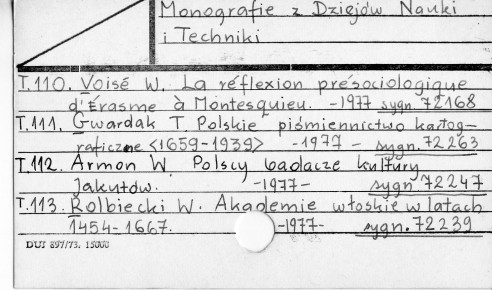 Monografie z Dziejów Nauki
i Techniki
T.110. Voisé W. La réflexion présociologique
d'Érasme à Montesquieu. -1977 sygn. 72168
T.111. Gwardak T. Polskie piśmiennictwo kartog-
raficzne <1659-1939> -1977- sygn. 72263
T.112. Armon W. Polscy badacze kultury
Jakutów. -1977- sygn 72247
T.113. Rolbiecki W. Akademie włoskie w latach
1454-1667. -1977- sygn. 72239
DUJ 897/73. 15000